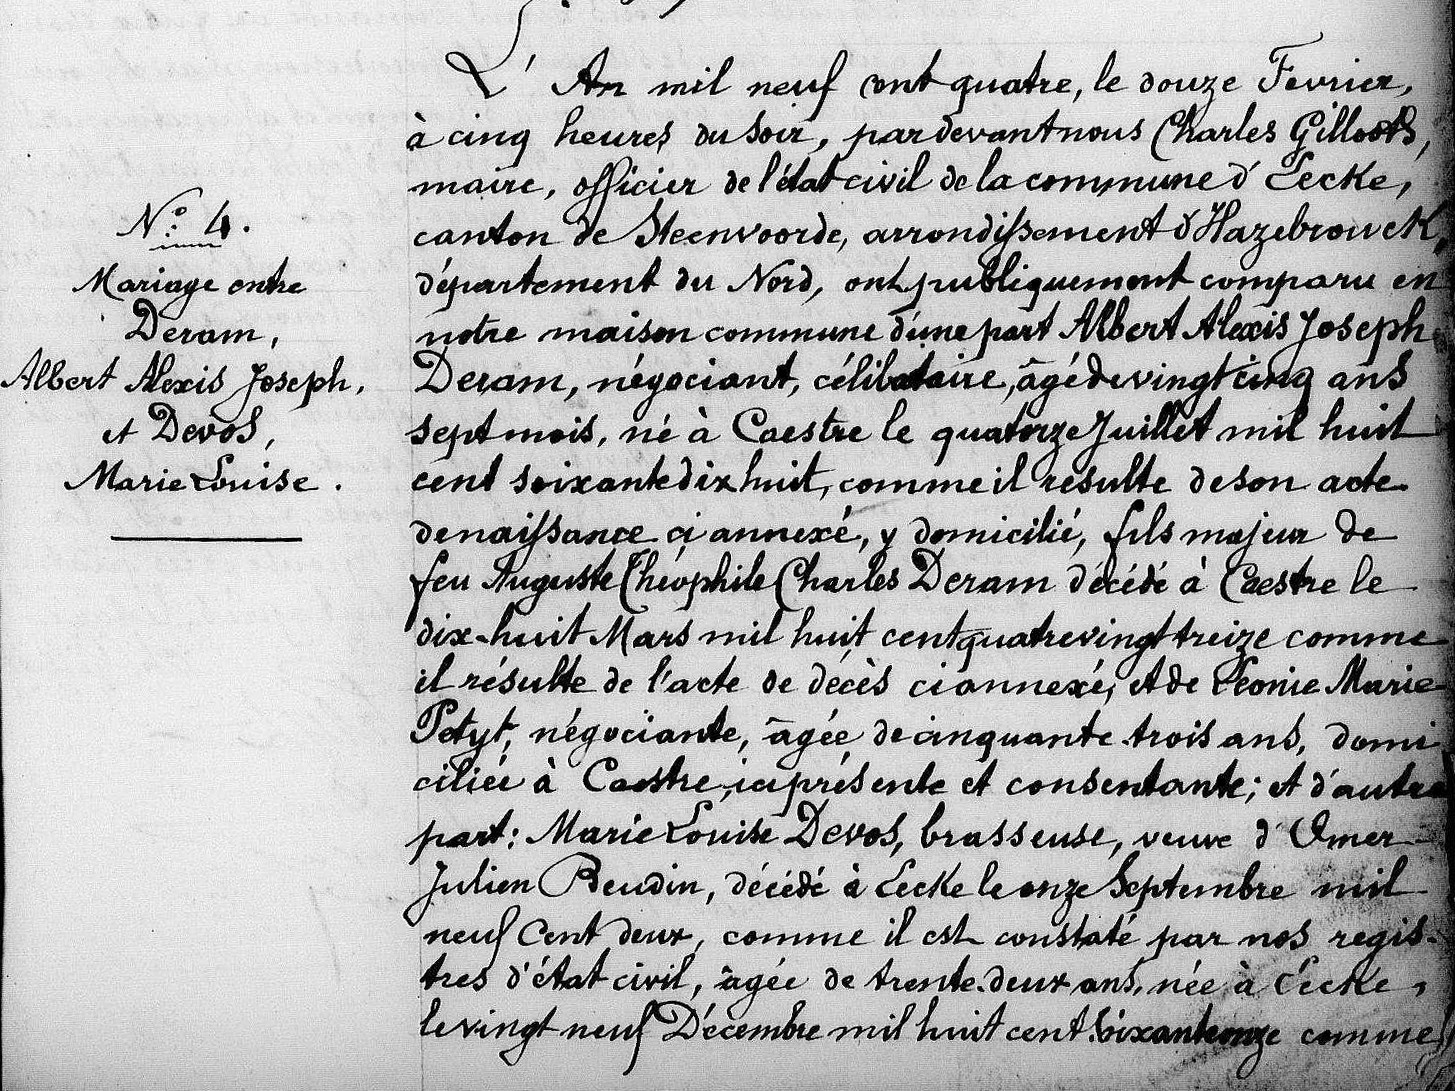 N.° 4.
Mariage entre
Deram,
Albert Alexis Joseph,
et Devos,
Marie Louise.
L'An mil neuf cent quatre, le douze Fevrier,
à cinq heures du soir, pardevant nous Charles Gilloots,
maire, officier de l'état civil de la commune d'Eecke,
canton de Steenvoorde, arrondissement d'Hazebrouck,
département du Nord, ont publiquement comparu en
notre maison commune d'une part Albert Alexis Joseph
Deram, négociant, célibataire, âgé de vingt cinq ans
sept mois, né à Caestre le quatorze Juillet mil huit
cent soixante dix huit, comme il résulte de son acte
de naissance ci annexé, y domicilié, fils majeur de
feu Auguste Théophile Charles Deram décédé à Caestre le
dix-huit Mars mil huit cent quatre vingt treize comme
il résulte de l'acte de décès ci annexé, et de Léonie Marie
Petyt, négociante, âgée de cinquante trois ans, domi
ciliée à Caestre, ici présente et consentante; et d'autre
part: Marie Louise Devos, brasseuse, veuve d'Omer
Julien Beudin, décédé à Eecke le onze Septembre mil
neuf Cent deux, comme il est constaté par nos regis-
tres d'état civil, âgée de trente-deux ans, née à Eecke,
le vingt neuf Décembre mil huit cent soixante onze comme